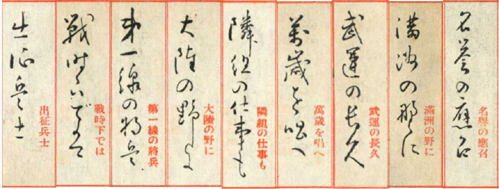 名誉の應召
名譽の應召
満洲の野に
滿洲の野に
武運の長久
武運の長久
萬歳を唱へ
萬歳を唱へ
隣組の仕事も
隣組の仕事も
大陸の野に
大陸の野に
第一線の将兵
第一線の將兵
戦時下では
戰時下では
出征兵士
出征兵士